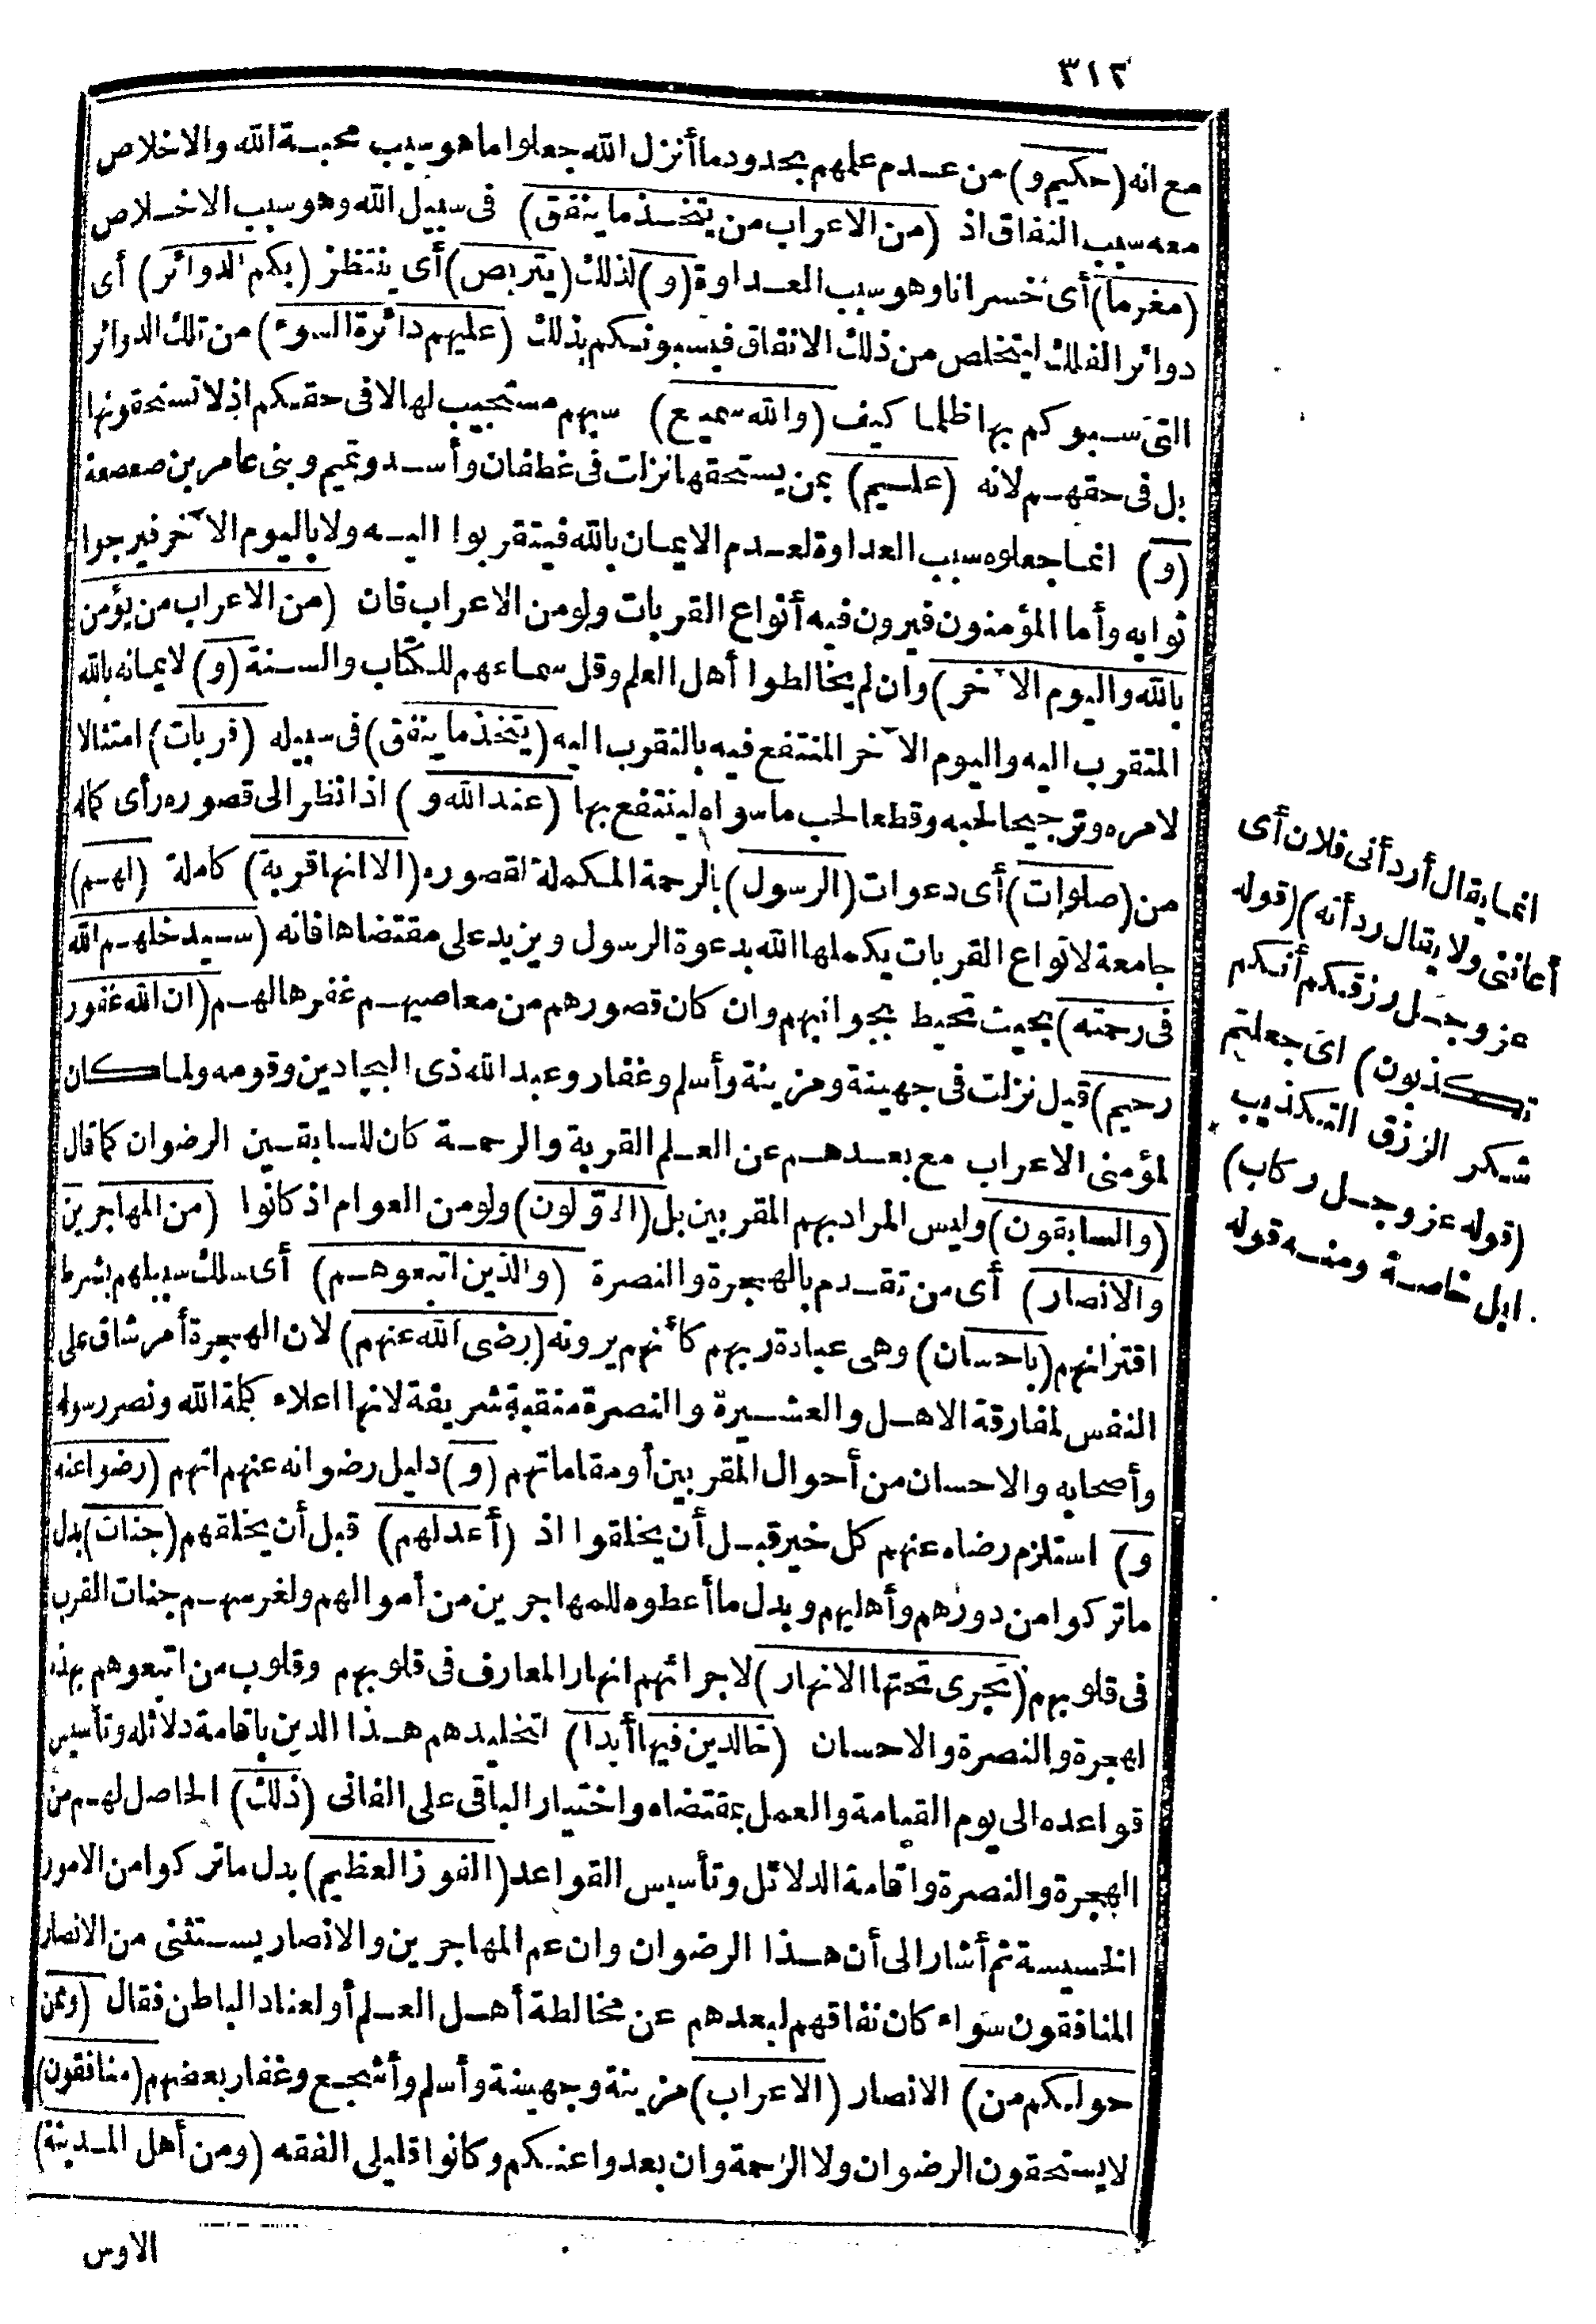 ٣١٢
مع انه (حكيم و) من عدم علمهم بحدود ما أنزل الله جعلوا ما هو سبب محبة الله والاخلاص
معه سبب النفاق اذ (من الاعراب من يتخذ ما ينفق) فى سبيل الله وهو سبب الاخلاص
(مغرما) أى خسرانا وهو سبب العداوة (و) لذلك (يتربص) أى ينتظر (بكم الدوائر) أى
دوائر الفلك ليتخلص من ذلك الانفاق فيسبونكم بذلك (عليهم دائرة السوء) من تلك الدوائر
التى سبوكم بها ظلما كيف (والله سميع) سبهم مستجيب لها لا فى حقكم اذ لا تستحقونها
بل فى حقهم لانه (عليم) بمن يستحقها نزلت فى غطفان وأسد وتميم وبنى عامر بن صعصعة
(و) انما جعلوه سبب العداوة لعدم الايمان بالله فيتقربوا اليه ولا باليوم الآخر فيرجوا
ثوابه وأما المؤمنون فيرون فيه أنواع القربات ولو من الاعراب فان (من الاعراب من يؤمن
بالله واليوم الآخر) وان لم يخالطوا أهل العلم وقل سماعهم للكتاب والسنة (و) لايمانه بالله
المتقرب اليه واليوم الآخر المنتفع فيه بالتقرب اليه (يتخذ ما ينفق) فى سبيله (قربات) امتثالا
لامره وترجيحا لحبه وقطعا لحب ما سواه لينتفع بها (عند الله و) اذا نظر الى قصوره رأى كماله
من (صلوات) أى دعوات (الرسول) بالرحمة المكملة لقصوره (الا انها قربة) كاملة (لهم)
جامعة لانواع القربات يكملها الله بدعوة الرسول ويزيد على مقتضاها فانه (سيدخلهم الله
فى رحمته) بحيث تحيط بجوانبهم وان كان قصورهم من معاصيهم غفرها لهم (ان الله غفور
رحيم) قيل نزلت فى جهينة ومزينة وأسلم وغفار وعبد الله ذى البجادين وقومه ولما كان
لمؤمنى الاعراب مع بعدهم عن العلم القربة والرحمة كان للسابقين الرضوان كما قال
(والسابقون) وليس المراد بهم المقربين بل (الاوّلون) ولو من العوام اذ كانوا (من المهاجرين
والانصار) أى من تقدم بالهجرة والنصرة (والذين اتبعوهم) أى سلك سبيلهم بشرط
اقترانهم (باحسان) وهى عبادة ربهم كأنهم يرونه (رضى الله عنهم) لان الهجرة أمر شاق على
النفس لمفارقة الاهل والعشيرة والنصرة منقبة شريفة لانها اعلاء كلمة الله ونصر رسوله
وأصحابه والاحسان من أحوال المقربين أو مقاماتهم (و) دليل رضوانه عنهم انهم (رضوا عنه
و) استلزم رضاه عنهم كل خير قبل أن يخلقوا اذ (أعدلهم) قبل أن يخلقهم (جنات) بدل
ما تركوا من دورهم وأهليهم وبدل ما أعطوه للمهاجرين من أموالهم ولغرسهم جنات القرب
فى قلوبهم (تجرى تحتها الانهار) لاجرائهم انهار المعارف فى قلوبهم وقلوب من اتبعوهم بهذه
الهجرة والنصرة والاحسان (خالدين فيها أبدا) لتخليدهم هذا الدين باقامة دلائله وتأسيس
قواعده الى يوم القيامة والعمل بمقتضاه واختيار الباقى على الفانى (ذلك) الحاصل لهم من
الهجرة والنصرة واقامة الدلائل وتأسيس القواعد (الفوز العظيم) بدل ما تركوا من الامور
الخسيسة ثم أشار الى أن هذا الرضوان وان عم المهاجرين والانصار يستثنى من الانصار
المنافقون سواء كان نفاقهم لبعدهم عن مخالطة أهل العلم أو لعناد الباطن فقال (وممن
حولكم من) الانصار (الاعراب) مزينة وجهينة وأسلم وأشجع وغفار بعضهم (منافقون)
لا يستحقون الرضوان ولا الرحمة وان بعدوا عنكم وكانوا قليلى الفقه (ومن أهل المدينة)
الاوس
انما يقال أردأنى فلان أى
أعاننى ولا يقال ردأته) (قوله
عز وجل رزقكم أنكم
تكذبون) اى جعلتم
شكر الرزق التكذيب
(قوله عز وجل ركاب)
ابل خاصة ومنه قوله